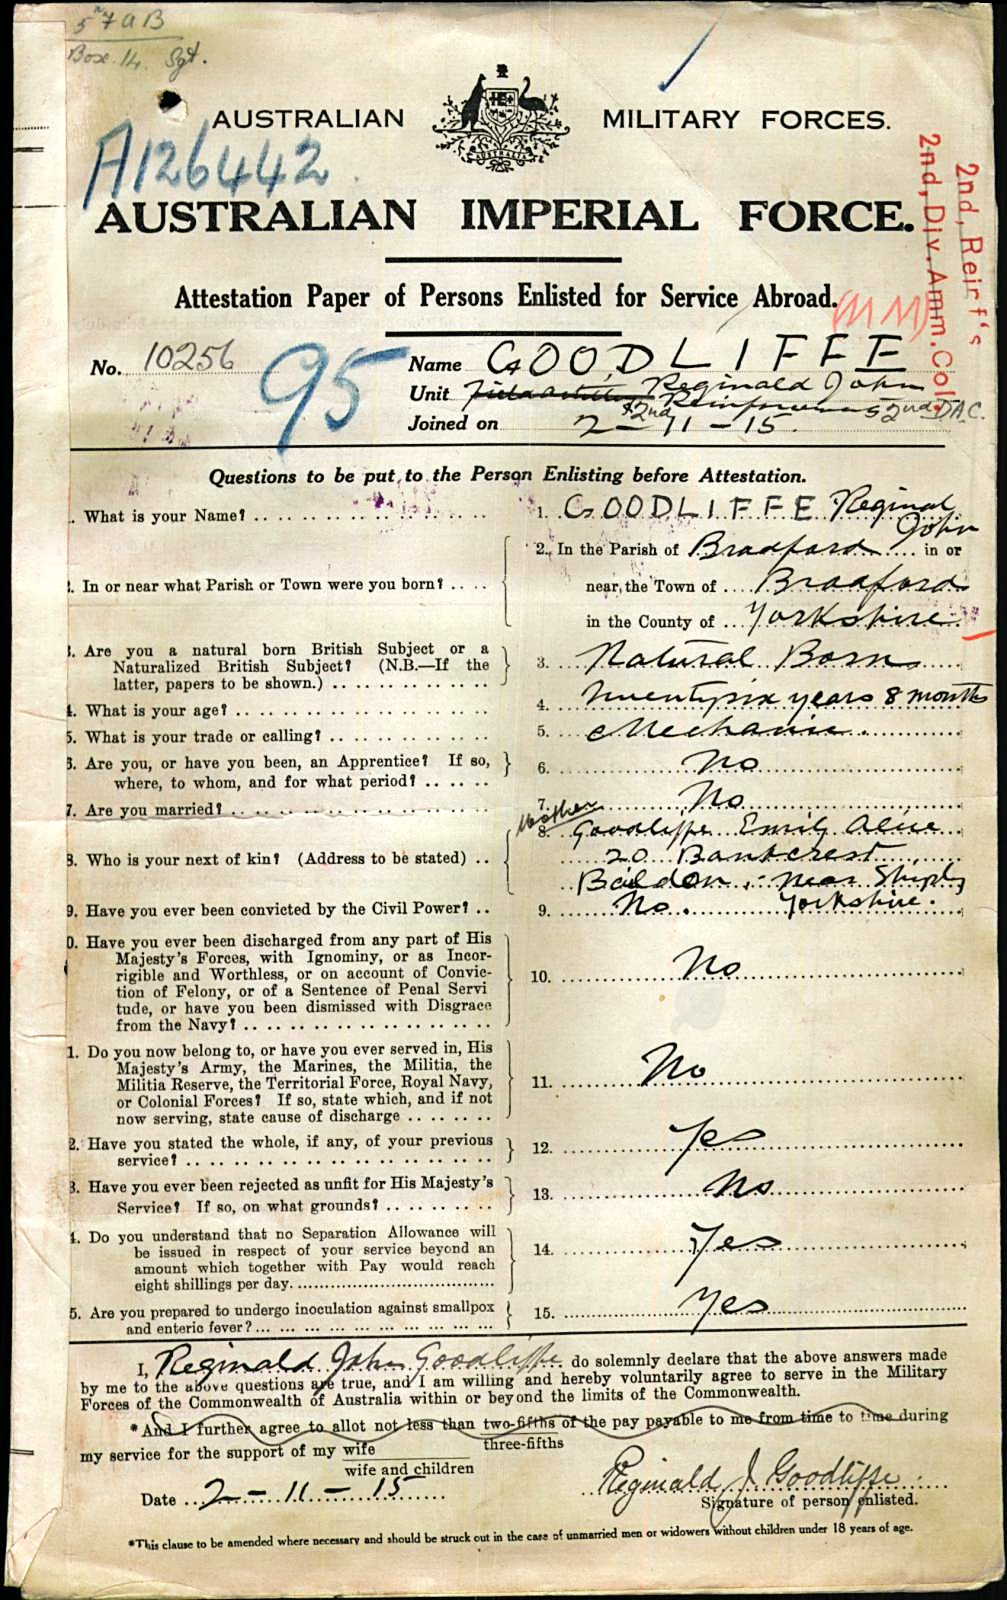 57 A B
Box 14. Sgt.
AUSTRALIAN MILITARY FORCES.
AUSTRALIA
A126442
AUSTRALIAN IMPERIAL FORCE.
2nd, Reinf's
2nd, Div. Amm. Col.
Attestation Paper of Persons Enlisted for Service Abroad.
(MM)
No. 10256
95
Name GOODLIFFE
Unit Reginald John
2nd Reinforcements 2nd DAC.
Joined on 2-11-15.
Questions to be put to the Person Enlisting before Attestation.
. What is your Name? .. 1. GOODLIFFE Reginal
John
2. In the Parish of Bradford in or
. In or near what Parish or Town were you born? .. near the Town of Bradford
in the County of Yorkshire
3. Are you a natural born British Subject or a
Naturalized British Subject? (N.B.—If the 3. Natural Born
latter, papers to be shown.) ..
4. What is your age? .. 4. twentysix years 8 months
5. What is your trade or calling? .. 5. Mechanic
6. Are you, or have you been, an Apprentice? If so, 6. No
where, to whom, and for what period? ..
7. Are you married? .. 7. No
Mother
8. Goodliffe Emily Alice
8. Who is your next of kin? (Address to be stated) .. 20 Bankcrest
Baildon, near Shiply
Yorkshire.
9. Have you ever been convicted by the Civil Power? .. 9. No.
0. Have you ever been discharged from any part of His
Majesty's Forces, with Ignominy, or as Incor-
rigible and Worthless, or on account of Convic- 10. No
tion of Felony, or of a Sentence of Penal Servi
tude, or have you been dismissed with Disgrace
from the Navy? ..
1. Do you now belong to, or have you ever served in, His
Majesty's Army, the Marines, the Militia, the
Militia Reserve, the Territorial Force, Royal Navy, 11. No
or Colonial Forces? If so, state which, and if not
now serving, state cause of discharge ..
2. Have you stated the whole, if any, of your previous 12. Yes
service? ..
3. Have you ever been rejected as unfit for His Majesty's 13. No
Service? If so, on what grounds? ..
4. Do you understand that no Separation Allowance will
be issued in respect of your service beyond an 14. Yes
amount which together with Pay would reach
eight shillings per day.
5. Are you prepared to undergo inoculation against smallpox 15. Yes
and enteric fever? ...
I, Reginald John Goodliffe do solemnly declare that the above answers made
by me to the above questions are true, and I am willing and hereby voluntarily agree to serve in the Military
Forces of the Commonwealth of Australia within or beyond the limits of the Commonwealth.
*And I further agree to allot not less than two-fifths of the pay payable to me from time to time during
three-fifths
my service for the support of my wife
wife and children
Date 2-11-15
Reginald J Goodliffe
Signature of person enlisted.
*This clause to be amended where necessary and should be struck out in the case of unmarried men or widowers without children under 18 years of age.